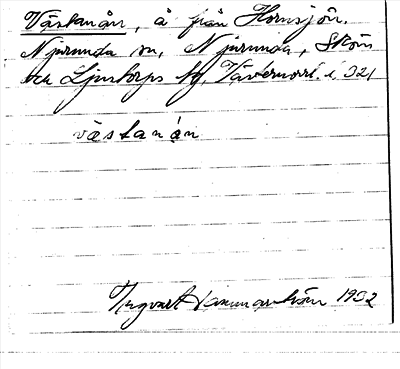 Västanån, å från Hornsjön.
Njurunda sn, Njurunda, Sköns
och Ljustorps tg, Västernorrl. l, 321
västanån
Ingvart Hammarström 1932